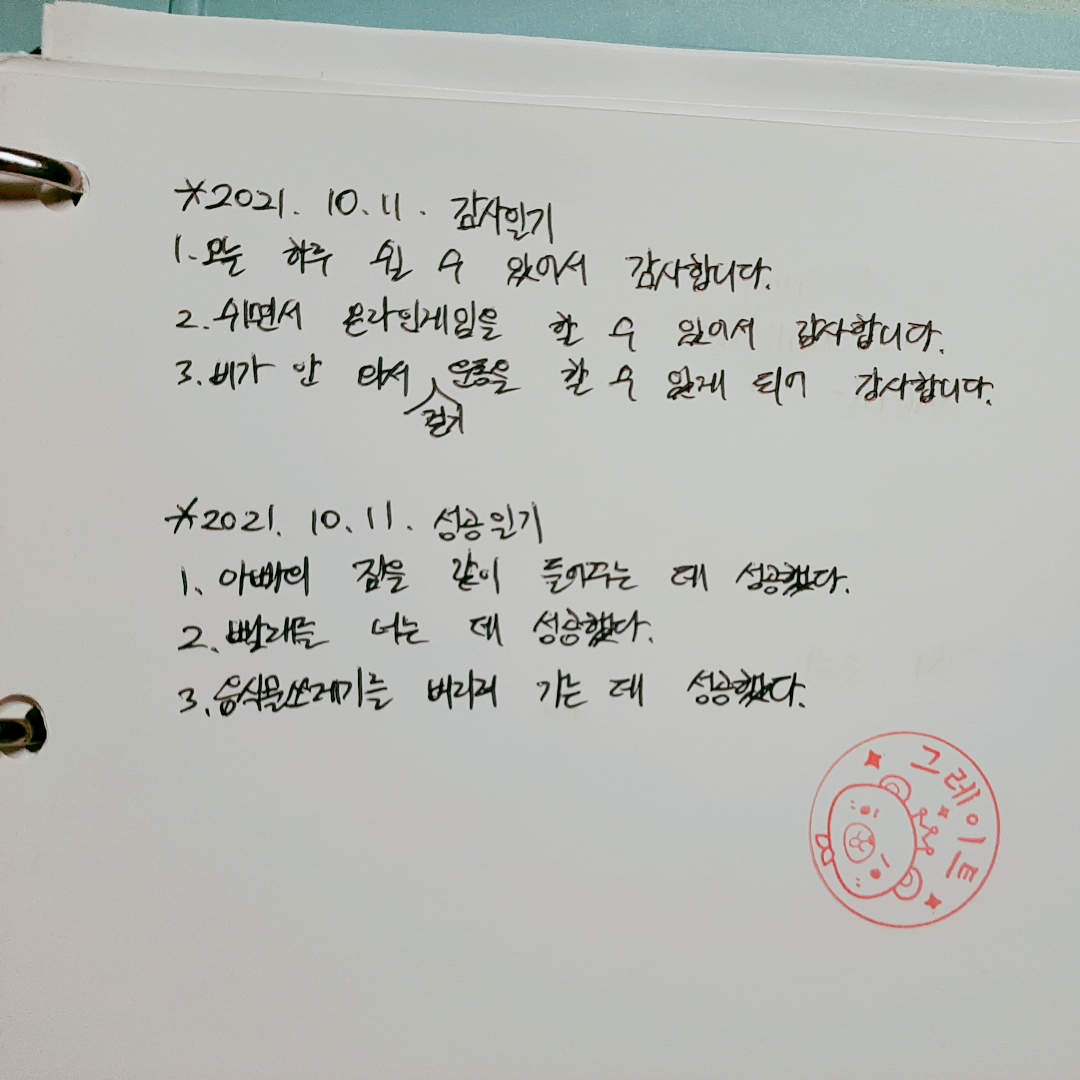 *2021. 10. 11. 감사일기
1. 오늘 하루 쉴 수 있어서 감사합니다.
2. 쉬면서 온라인게임을 할 수 있어서 감사합니다.
3. 비가 안 와서 운동을 할 수 있게 되어 감사합니다.
걷기
*2021. 10. 11. 성공일기
1. 아빠의 짐을 같이 들어주는 데 성공했다.
2. 빨래를 너는 데 성공했다.
3. 음식물쓰레기를 버리러 가는 데 성공했다.
그레이트